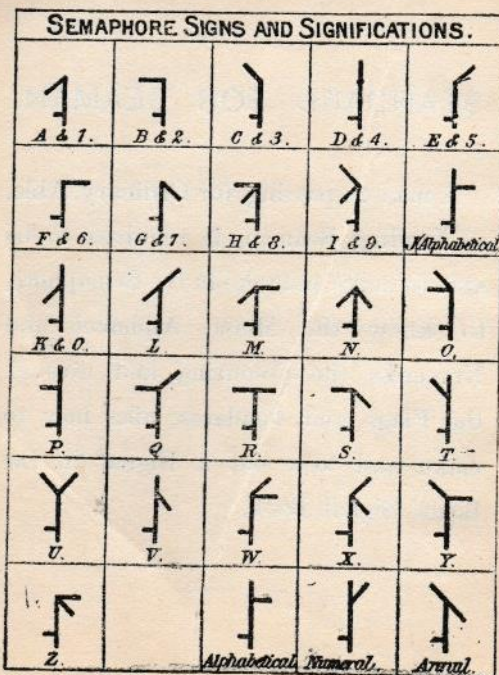 SEMAPHORE SIGNS AND SIGNIFICATIONS.
A & 1. B & 2. C & 3. D & 4. E & 5.
F & 6. G & 7. H & 8. I & 9. J(Alphabetical
K & O. L. M. N. O.
P. Q. R. S. T.
U. V. W. X. Y.
Z. Alphabetical. Numeral. Annul.